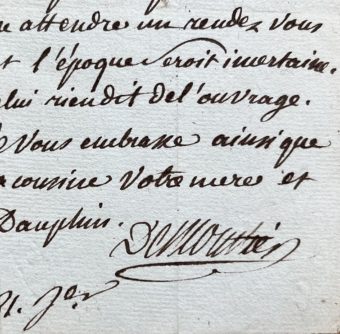 attendre un rendez vous
l'époque seroit incertaine.
lui riendit del'ouvrage.
vous embrasse ainsi que
cousine votre mere et
Dauphin.
Demoutié
21. Jer